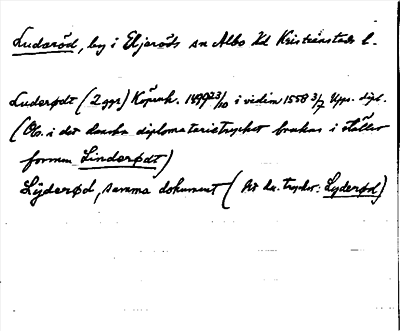 Luderöd, by i Eljeröds sn Albo hd Kristianstads l.
Luderødt (2 ggr) Köpenh. 1499 23/10 i vidim 1558 3/7 Upps. dipl.
(Obs. i det danska diplomatarietrycket brukas i stället
formen Linderødt)
Lÿderød, samma dokument (Di da. trycket: Lyderød)